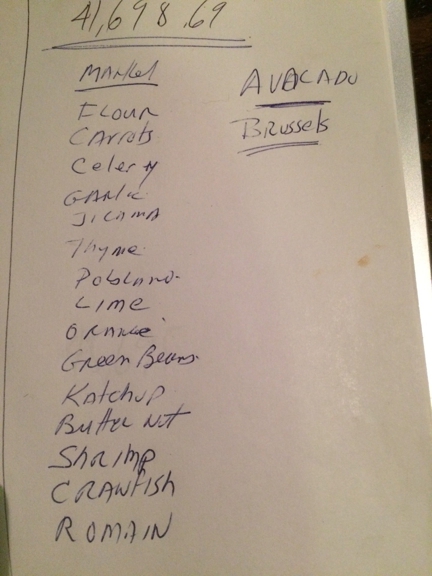 41,698.69
Market
Flour
Carrots
Celery
Garlic
Jicama
Thyme
Poblano
Lime
Orange
Green Beans
Katchup
Butter Nut
Shrimp
Crawfish
Romain
Avocado
Brussels